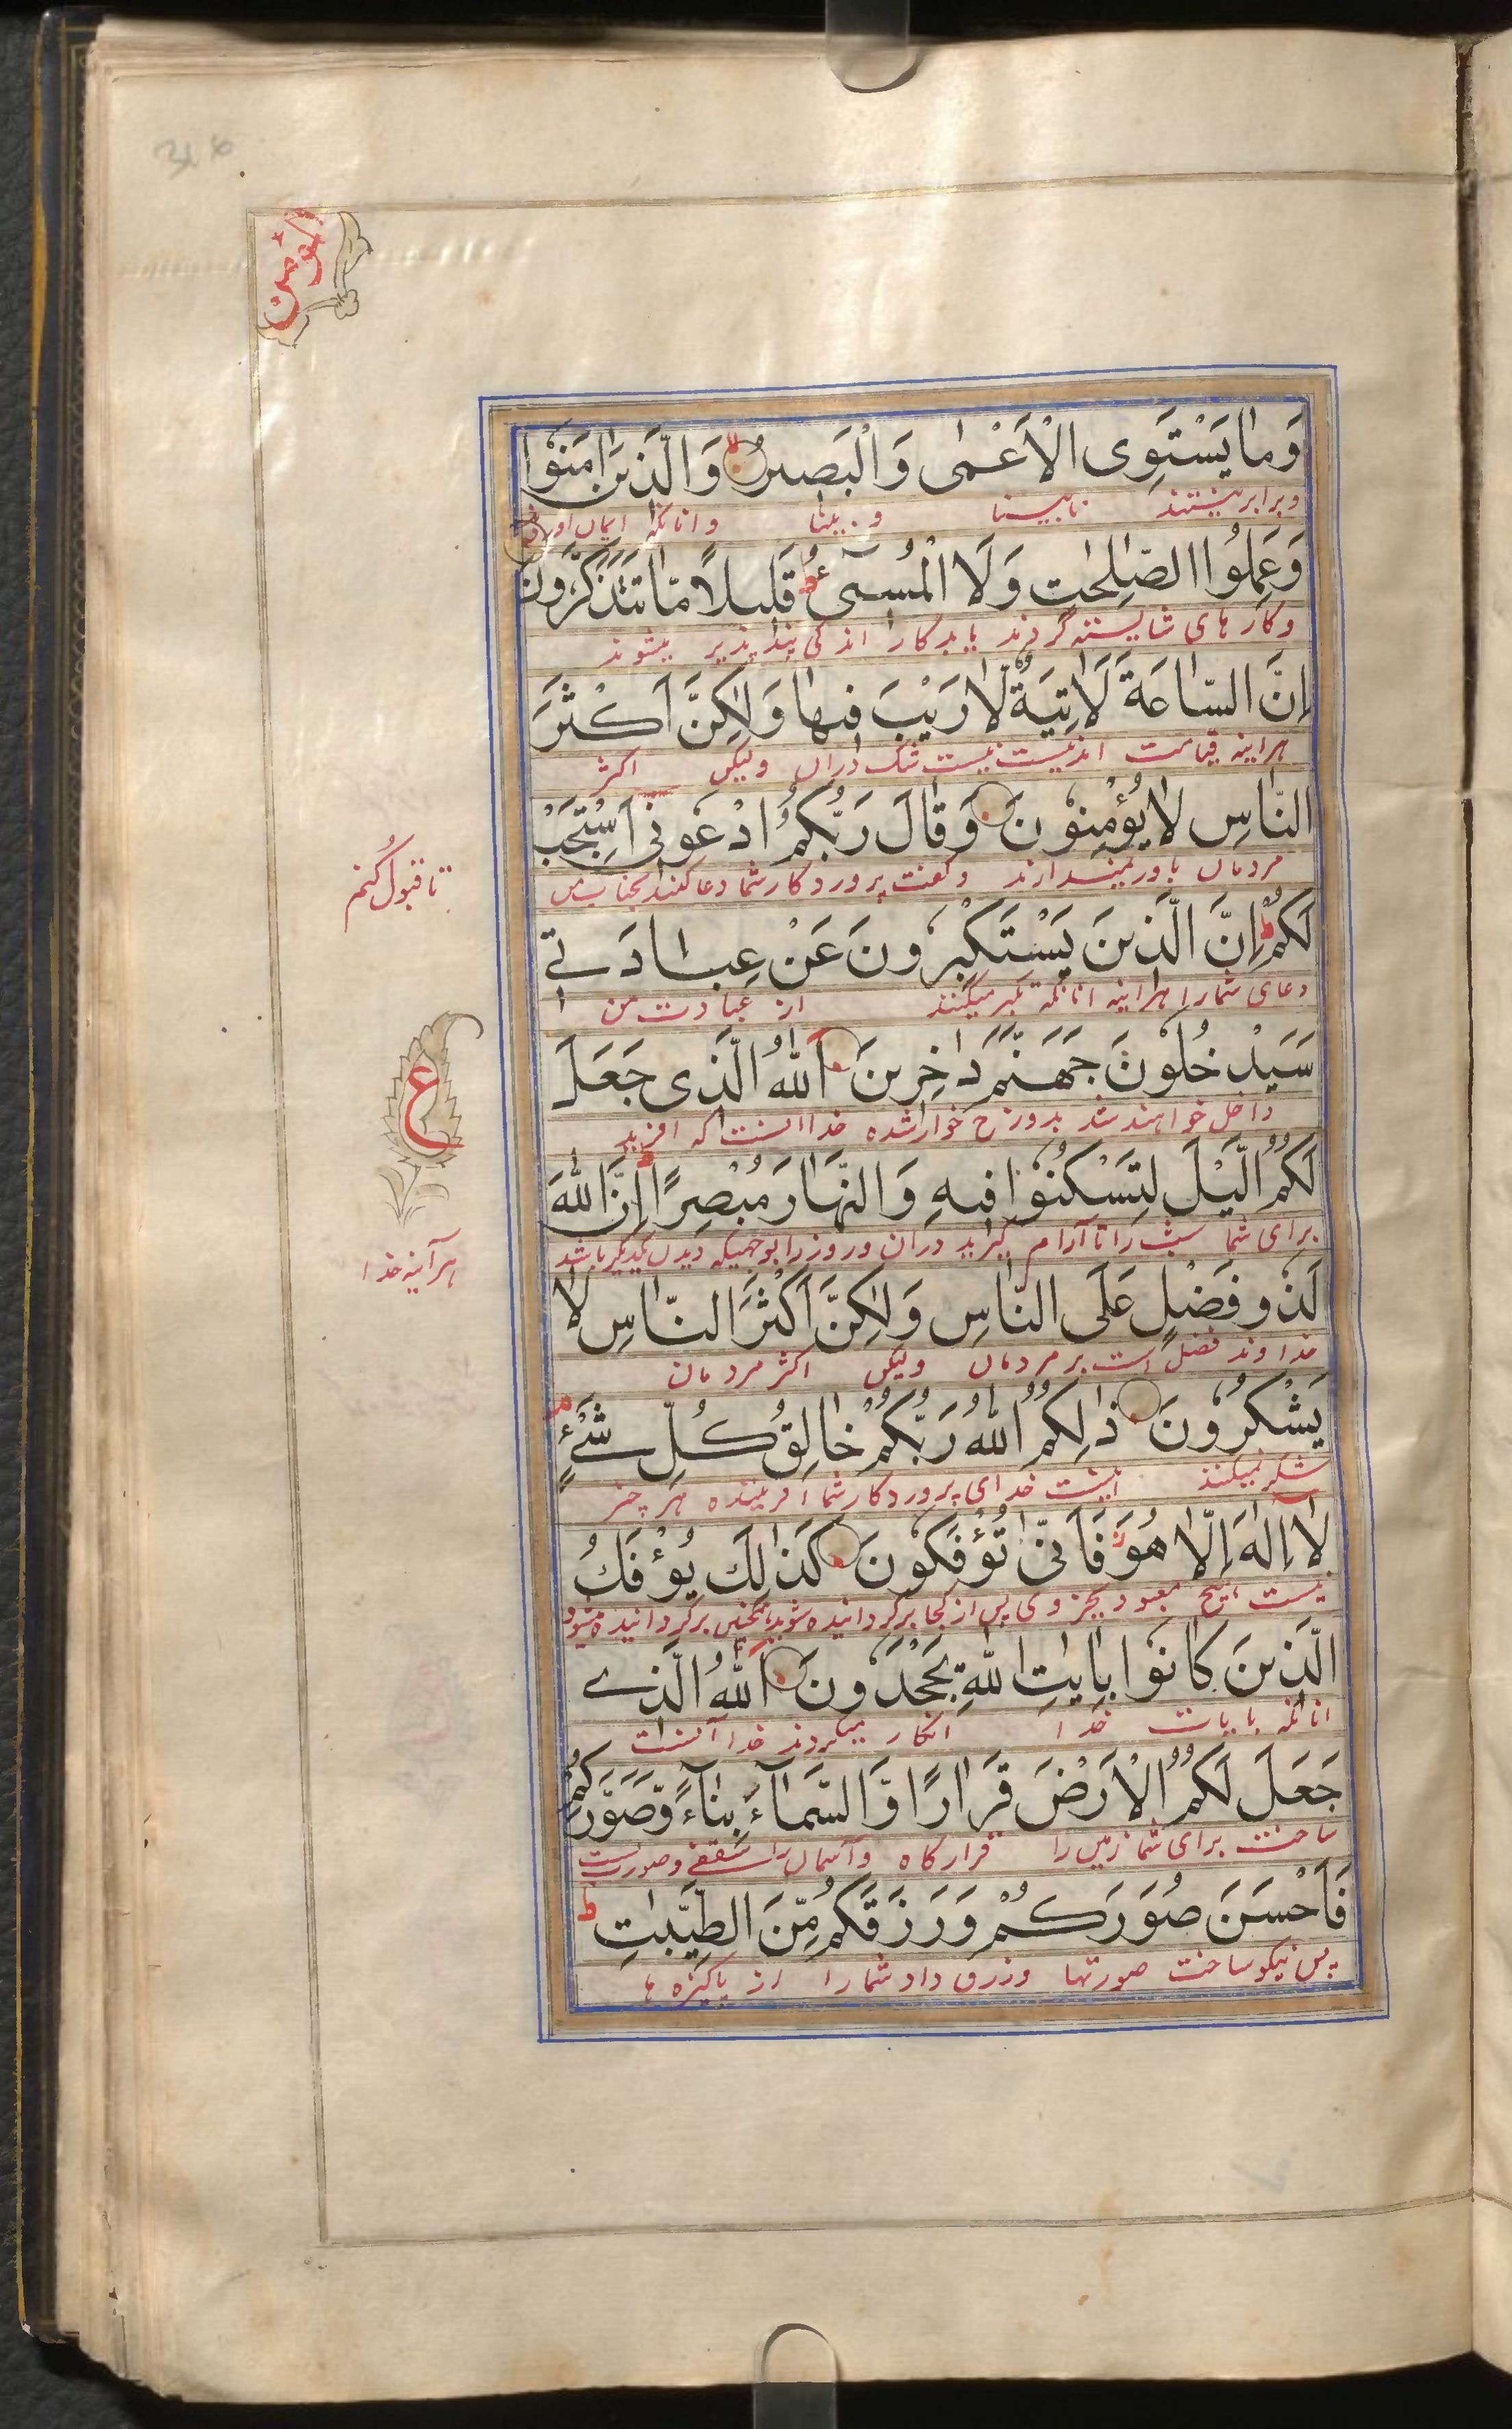 المؤمن
وَمَا يَسْتَوِى الْاَعْمٰى وَالْبَصِيرُ وَالَّذِينَ اٰمَنُوْا
و برابر نیستند نابینا و بینا و انانکه ایمان اوردند
وَعَمِلُوا الصّٰلِحٰتِ وَلَا الْمُسِىٓءُ ط قَلِيلًا مَّا تَتَذَكَّرُونَ
و کارهای شایسته کردند یا بدکار اندکی پند پذیر میشوند
اِنَّ السَّاعَةَ لَاٰتِيَةٌ لَّا رَيْبَ فِيهَا وَلٰكِنَّ اَكْثَرَ
هراینه قیامت نیست شک دران ولیکن اکثر
النَّاسِ لَا يُؤْمِنُوْنَ وَقَالَ رَبُّكُمُ ادْعُوْنِىٓ اَسْتَجِبْ
مردمان باور نمیدارند و گفت پروردکار شما دعا کنید بجناب من
تا قبول کنم
لَكُمْ ط اِنَّ الَّذِينَ يَسْتَكْبِرُوْنَ عَنْ عِبَادَتِى
دعای شمارا هراینه انانکه تکبر میکنند از عبادت من
سَيَدْخُلُوْنَ جَهَنَّمَ دٰخِرِينَ اَللّٰهُ الَّذِى جَعَلَ
داخل خواهند شد بدوزخ خوار شده خدا انست که افرید
ع
لَكُمُ الَّيْلَ لِتَسْكُنُوْا فِيهِ وَالنَّهَارَ مُبْصِرًا ط اِنَّ اللّٰهَ
برای شما شب را تا آرام گیرید دران و روز را بوجهیکه دیدن یکدیگر باشد
هرآینه خدا
لَذُوْ فَضْلٍ عَلَى النَّاسِ وَلٰكِنَّ اَكْثَرَ النَّاسِ لَا
خداوند فضل است بر مردمان ولیکن اکثر مردمان
يَشْكُرُوْنَ ذٰلِكُمُ اللّٰهُ رَبُّكُمْ خَالِقُ كُلِّ شَىْءٍ م
شکر نمیکنند اینست خدای پروردکار شما افریننده هر چیز
لَآ اِلٰهَ اِلَّا هُوَ ز فَاَنّٰى تُؤْفَكُوْنَ كَذٰلِكَ يُؤْفَكُ
نیست هیچ معبود بجز وی پس از کجا برگردانیده شوید همچنین برگردانیده میشود
الَّذِينَ كَانُوْا بِاٰيٰتِ اللّٰهِ يَجْحَدُوْنَ اَللّٰهُ الَّذِى
انانکه بایات خدا انکار میکردند خدا آنست
جَعَلَ لَكُمُ الْاَرْضَ قَرَارًا وَّالسَّمَآءَ بِنَآءً وَّصَوَّرَكُمْ
ساخت برای شما زمین را قرارگاه و آسمان را سقفی و صورت بست
فَاَحْسَنَ صُوَرَكُمْ وَرَزَقَكُمْ مِّنَ الطَّيِّبٰتِ ط
پس نیکو ساخت صورتها و رزق داد شمارا از پاکیزه ها